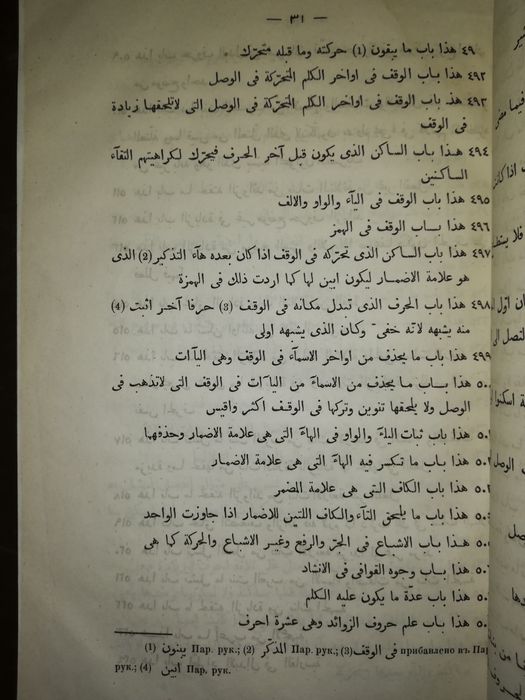 — ٣١ —
٤٩ هذا باب ما يبقون (1) حركته وما قبله متحرّك
٤٩٢ هذا باب الوقف فى اواخر الكلم المتحرّكة فى الوصل
٤٩٣ هذ باب الوقف فى اواخر الكلم المتحرّكة فى الوصل التى لا تلحقها زيادة
فى الوقف
٤٩٤ هذا باب الساكن الذى يكون قبل آخر الحرف فيحرّك لكراهيتهم التقآء
الساكنين
٤٩٥ هذا باب الوقف فى اليآء والواو والالف
٤٩٦ هذا باب الوقف فى الهمز
٤٩٧ هذا باب الساكن الذى تحرّكه فى الوقف اذا كان بعده هآء التذكير (2) الذى
هو علامة الاضمار ليكون ابين لها كما اردت ذلك فى الهمزة
٤٩٨ هذا باب الحرف الذى تبدل مكانه فى الوقف (3) حرفا آخر اثبت (4)
منه يشبهه لانّه خفىّ وكان الذى يشبهه اولى
٤٩٩ هذا باب ما يحذف من اواخر الاسمآء فى الوقف وهى اليآات
٥٠. هذا باب ما يحذف من الاسمآء من اليآات فى الوقف التى لا تذهب فى
الوصل ولا يلحقها تنوين وتركها فى الوقف اكثر واقيس
٥٠ هذا باب ثبات اليآء والواو فى الهآء التى هى علامة الاضمار وحذفهما
٥٠ هذا باب ما تكسر فيه الهآء التى هى علامة الاضمار
٥٠ هذا باب الكاف التى هى علامة المضمر
٥٠ هذا باب ما يلحق التآء والكاف اللتين للاضمار اذا جاوزت الواحد
٥٠ هذا باب الاشباع فى الجرّ والرفع وغير الاشباع والحركة كما هى
٥٠ هذا باب وجوه القوافى فى الانشاد
٥٠ هذا باب عدّة ما يكون عليه الكلم
٥٠ هذا باب علم حروف الزوائد وهى عشرة احرف
(1) يبنون Пар. рук.; (2) المذكّر Пар. рук.; (3) فى الوقف прибавлено въ Пар
рук.; (4) ابين Пар. рук.